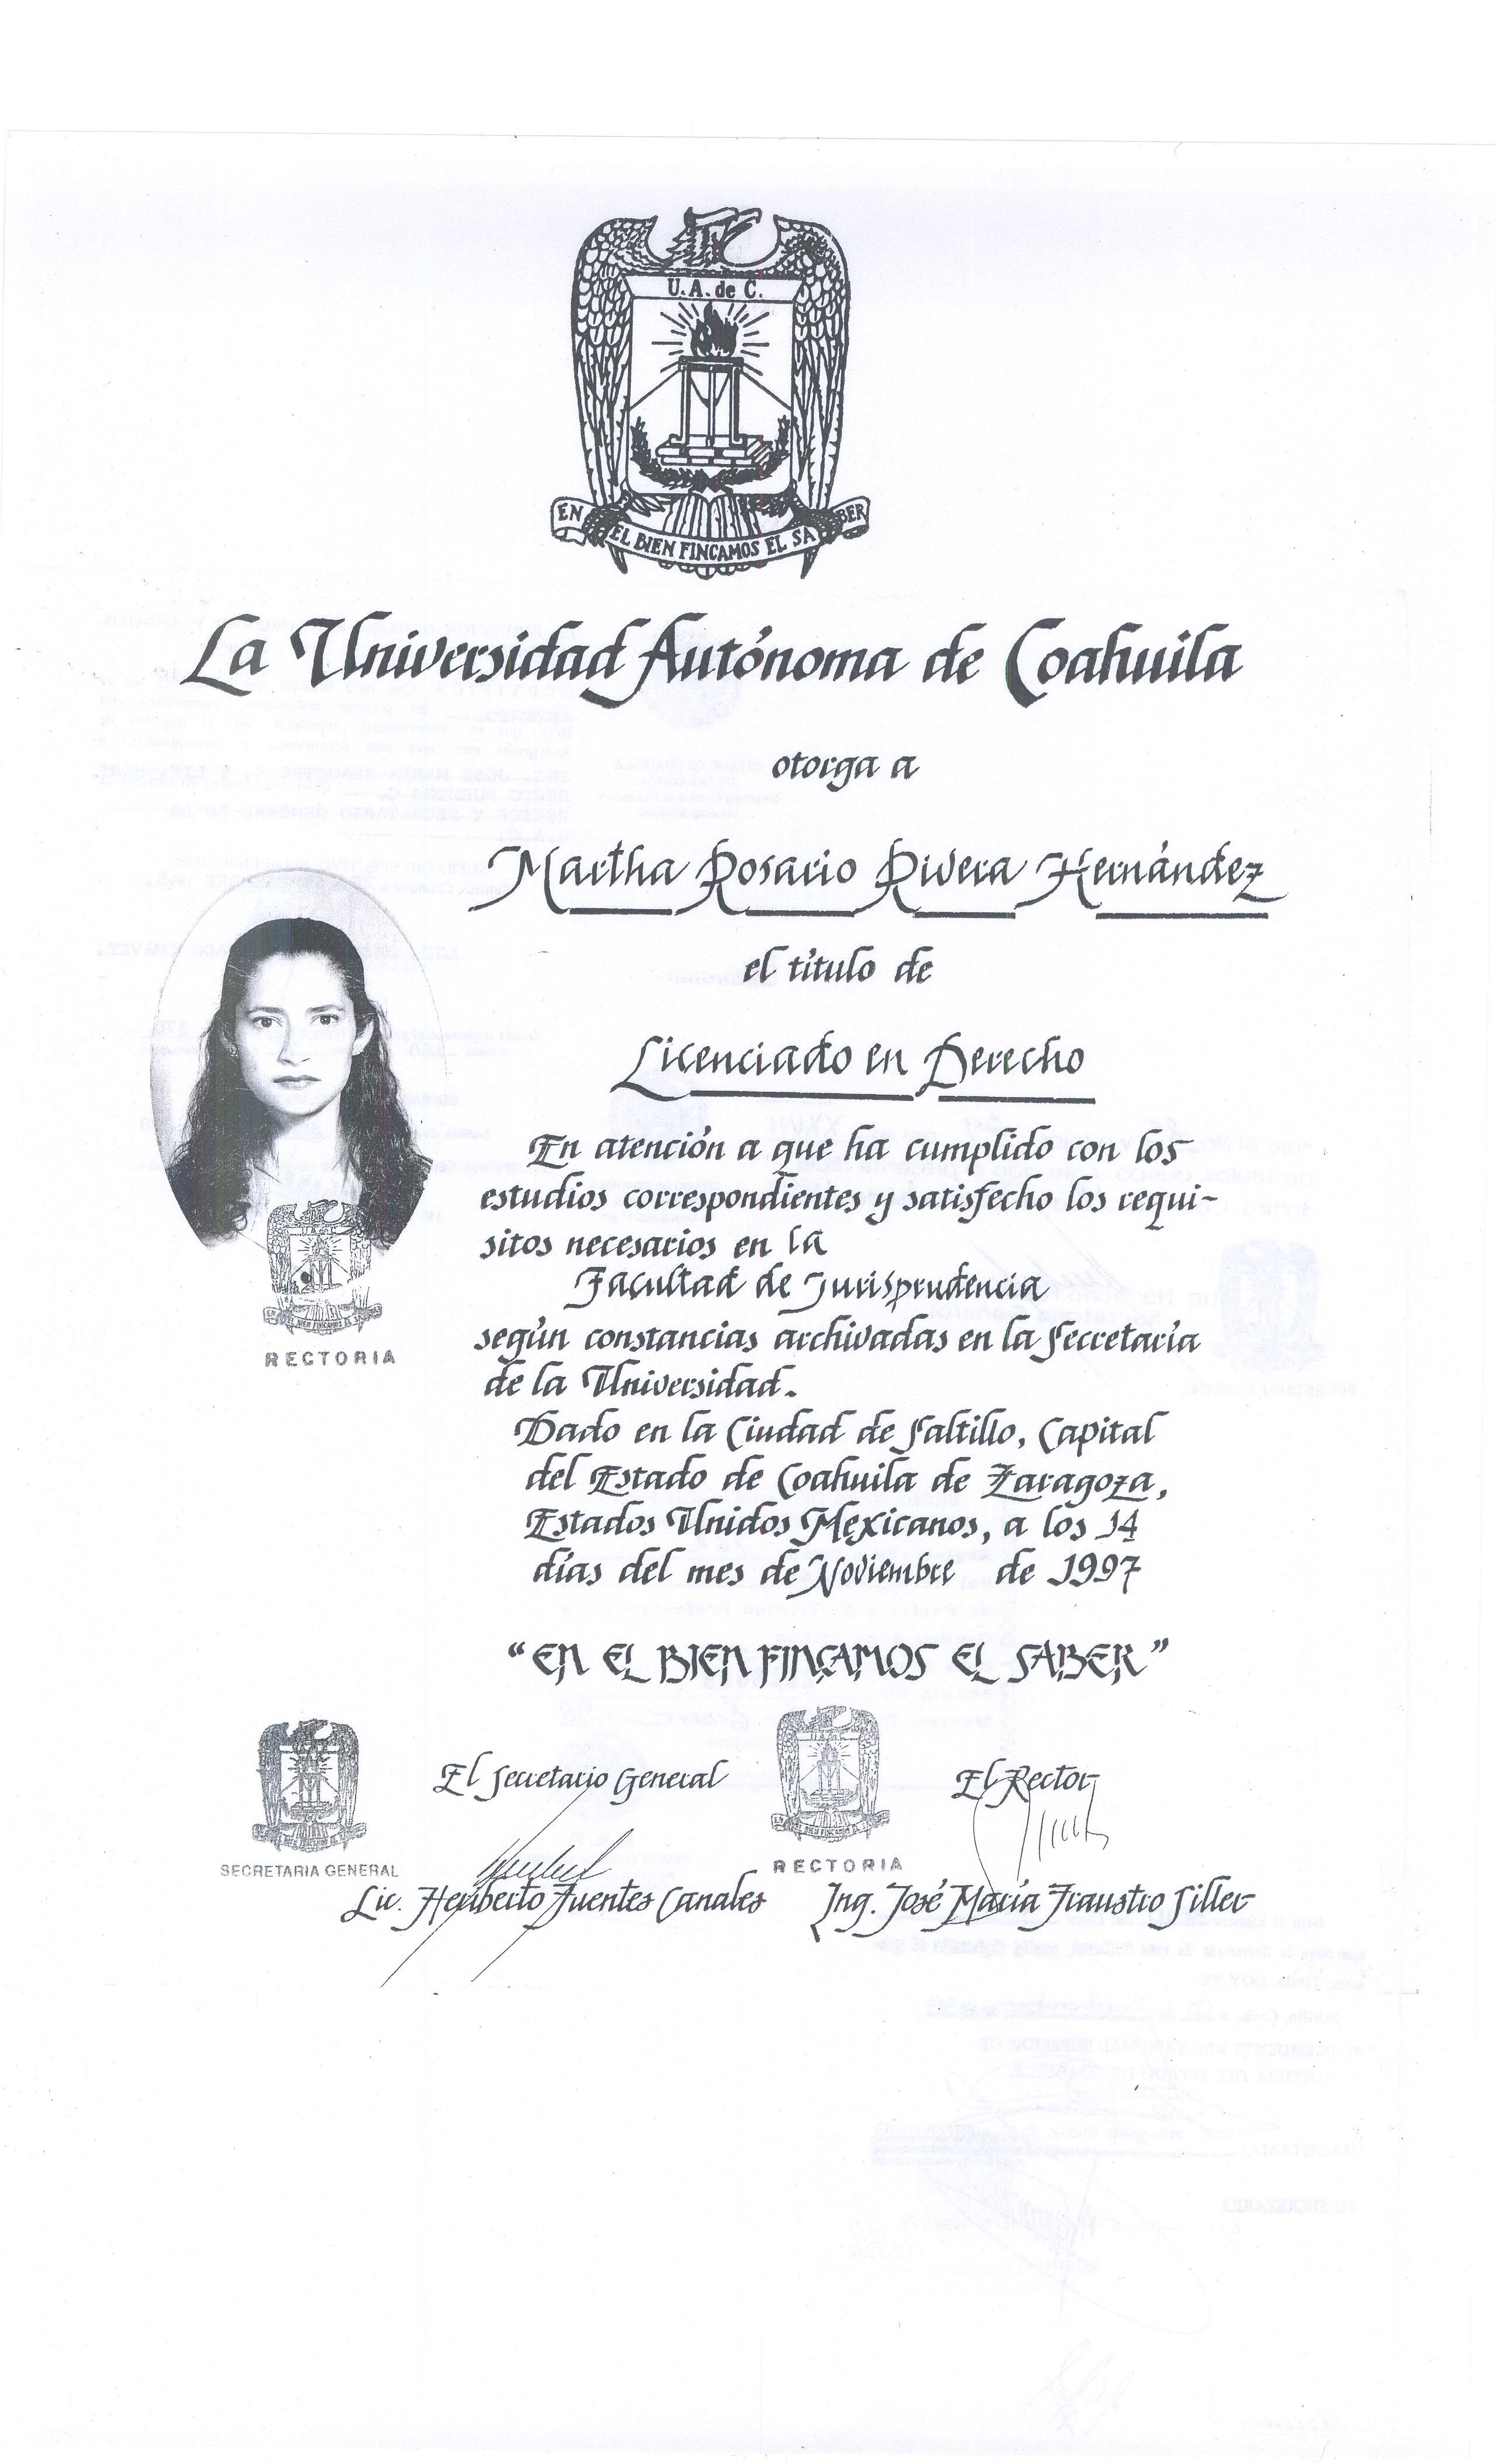 U.A. de C.
EN EL BIEN FINCAMOS EL SABER
La Universidad Autónoma de Coahuila
otorga a
Martha Rosario Rivera Hernández
el título de
Licenciado en Derecho
En atención a que ha cumplido con los
estudios correspondientes y satisfecho los requi-
sitos necesarios en la
Facultad de Jurisprudencia
según constancias archivadas en la Secretaría
de la Universidad.
Dado en la Ciudad de Saltillo, Capital
del Estado de Coahuila de Zaragoza,
Estados Unidos Mexicanos, a los 14
días del mes de Noviembre de 1997
RECTORIA
"EN EL BIEN FINCAMOS EL SABER"
El Secretario General
El Rector
SECRETARIA GENERAL
RECTORIA
Lic. Heriberto Fuentes Canales
Ing. José María Fraustro Siller